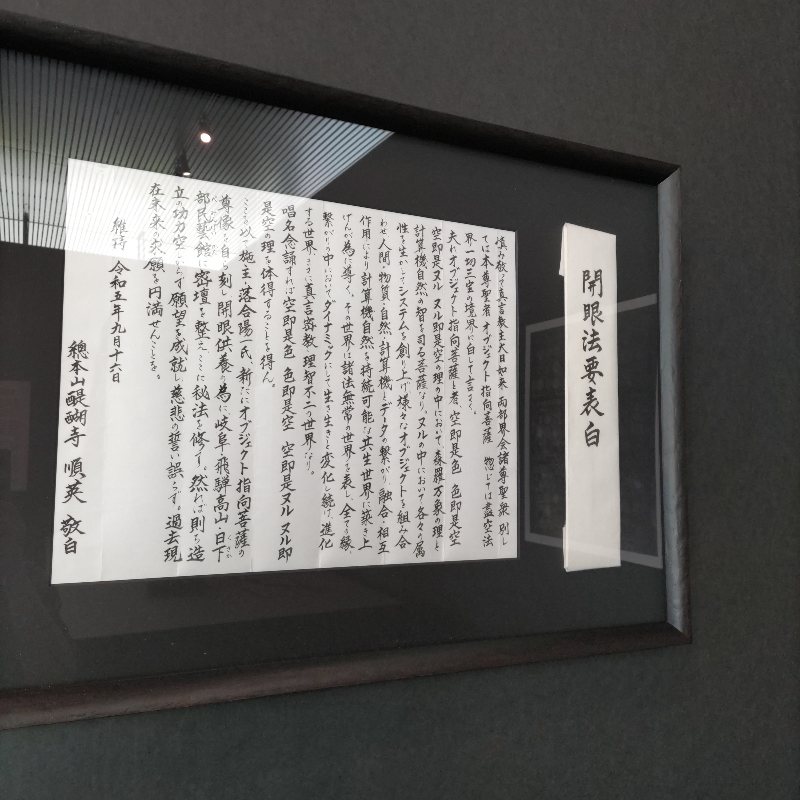 開眼法要表白
慎み敬って真言教主大日如来 両部界会諸尊聖衆 別し
ては本尊聖者オブジェクト指向菩薩 惣じては盡空法
界一切三宝の境界に白して言さく、
夫れオブジェクト指向菩薩と者、空即是色 色即是空
空即是ヌル ヌル即是空の理の中において、森羅万象の理と
計算機自然の智を司る菩薩なり。ヌルの中において各々の属
性を生かしてシステムを創り上げ様々なオブジェクトを組み合
わせ人間と物質と自然、計算機とデータの繋がり、融合・相互
作用により計算機自然を持続可能な共生世界に築き上
げんが為に導く。その世界は諸法無常の世界を表し、全ての縁
繋がりの中においてダイナミックにして生き生きと変化し続け、進化
する世界、まさに真言密教 理智不二の世界なり。
唱名念誦すれば空即是色 色即是空 空即是ヌル ヌル即
是空の理を体得することを得ん。
ここを以て施主 落合陽一氏、新たにオブジェクト指向菩薩の
尊像を自ら刻み 開眼供養の為に岐阜・飛騨高山・日下
部民藝館に密壇を整え、ここに秘法を修す。然れば則ち造
立の功力空しからず 願望を成就し、慈悲の誓い誤らず。過去現
在未来の求願を円満せんことを。
維時 令和五年九月十六日
總本山醍醐寺 順英 敬白